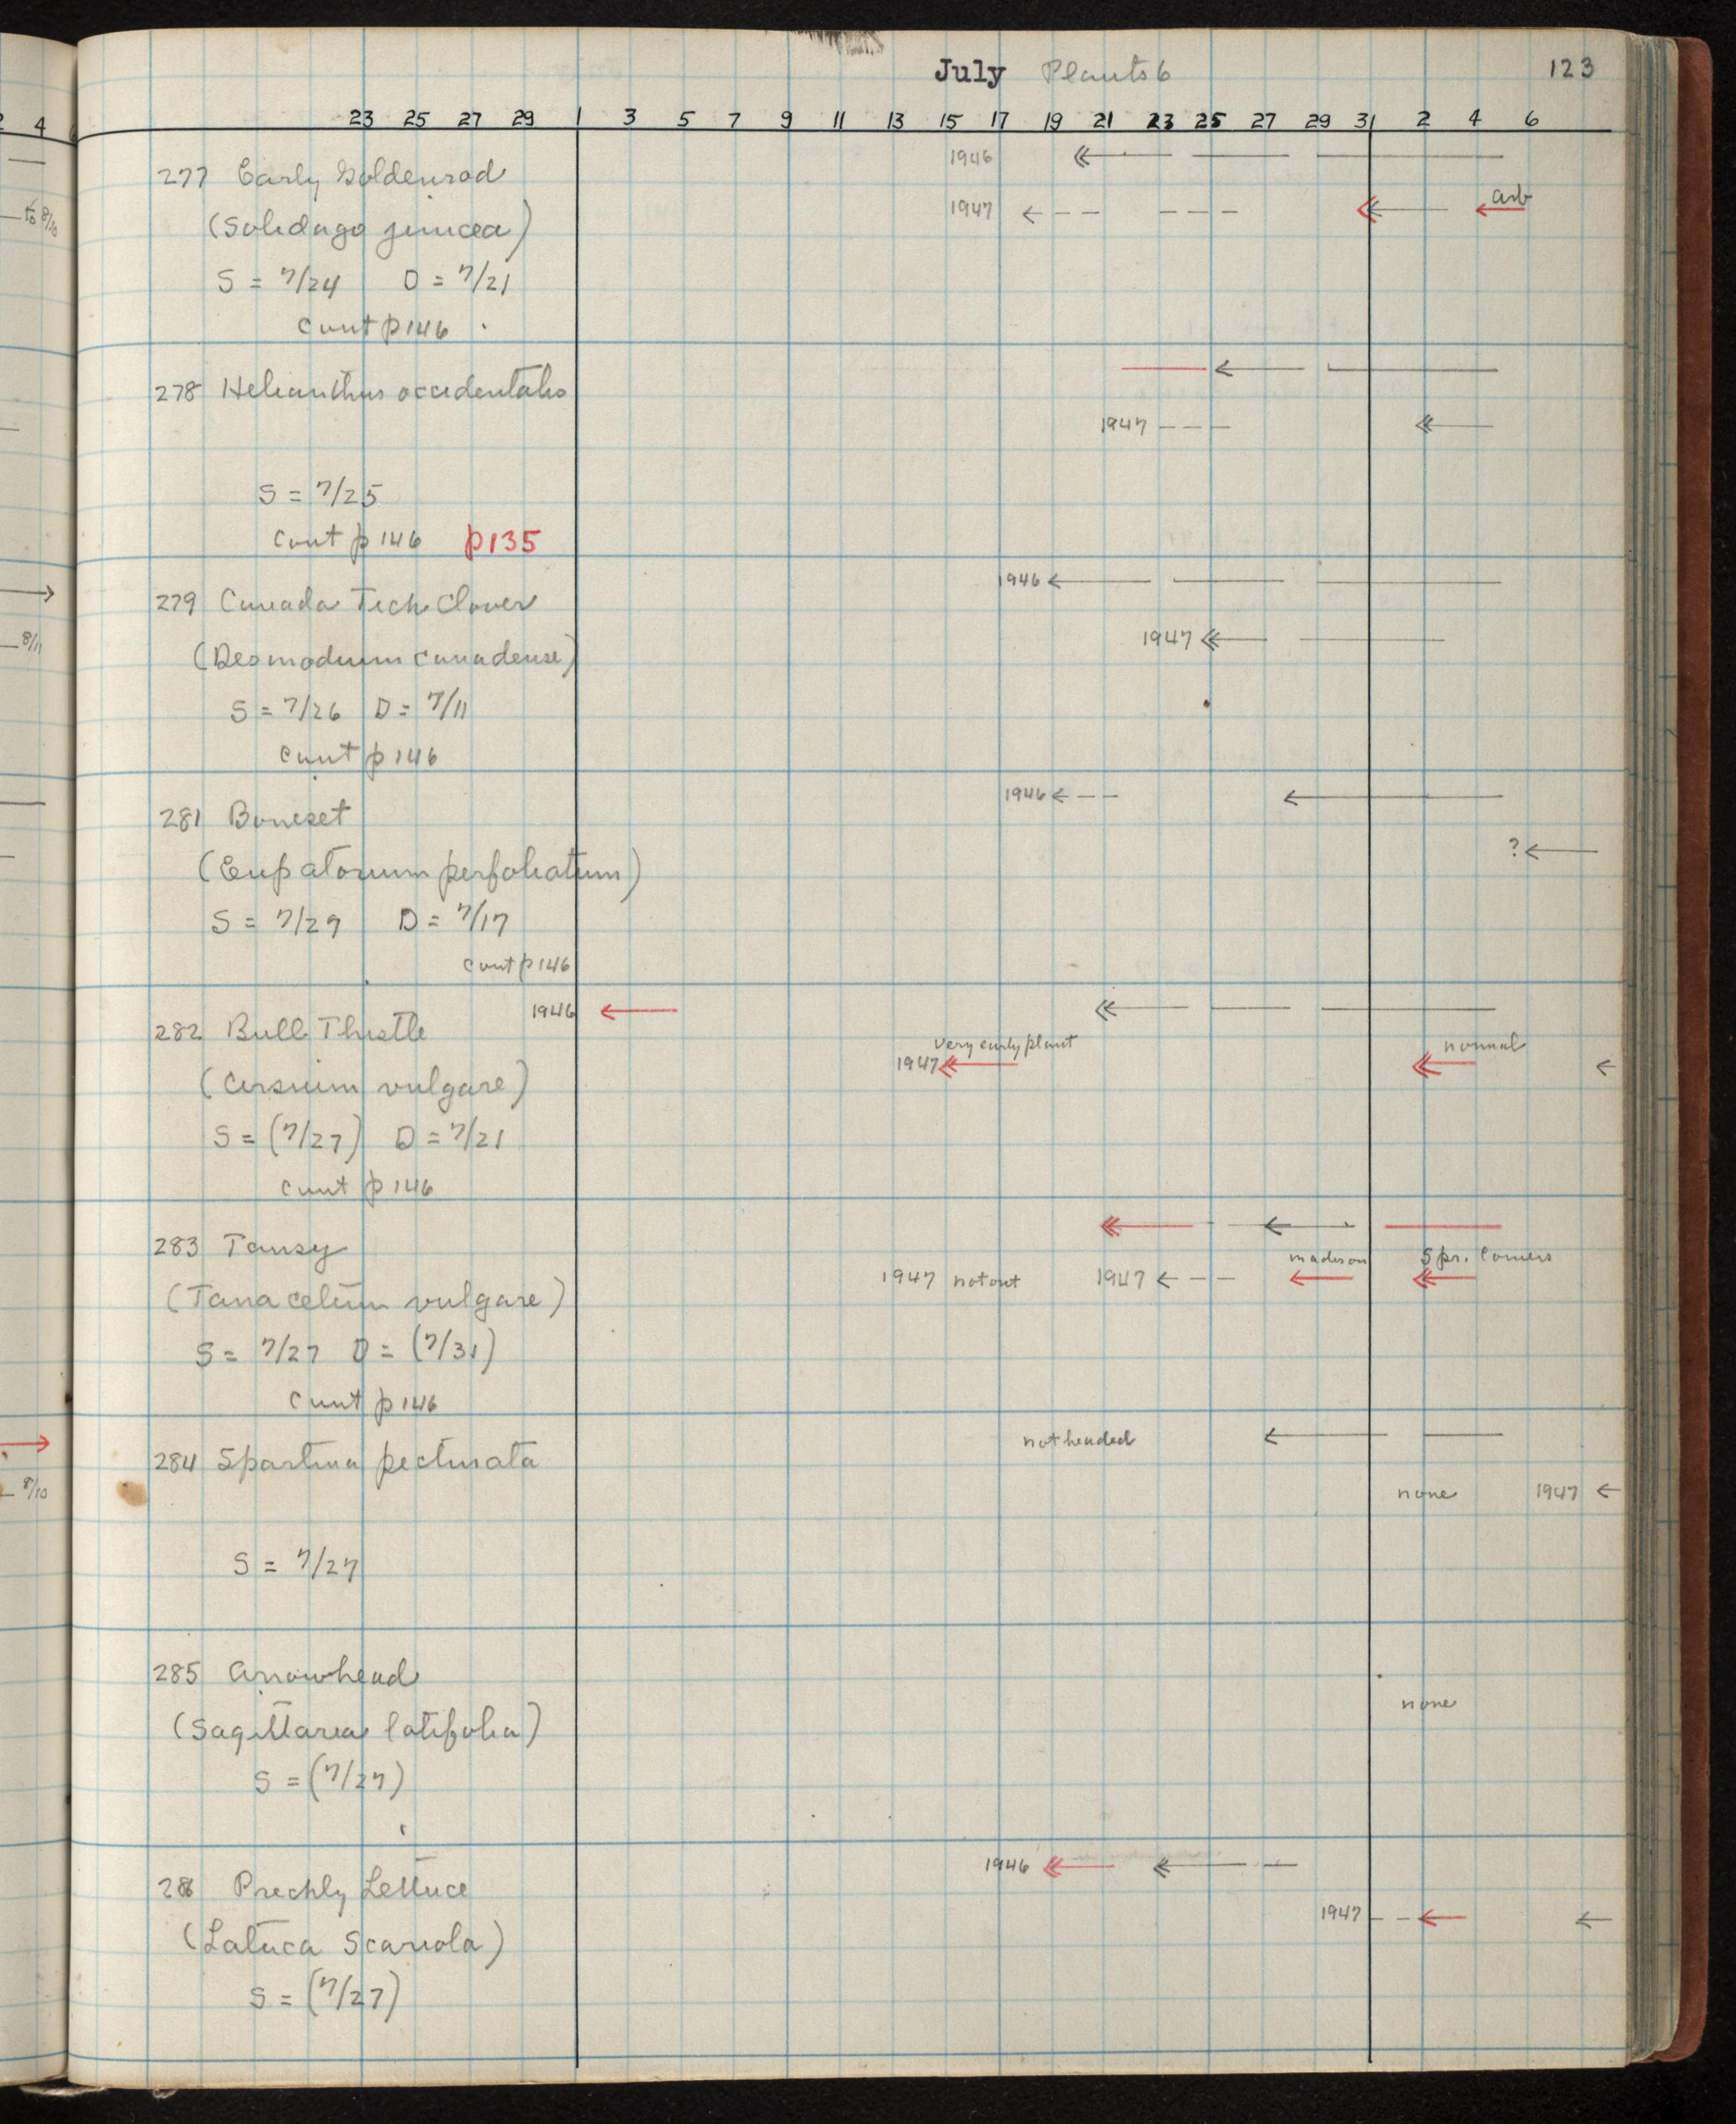 July Plants 6 123
4 23 25 27 29 1 3 5 7 9 11 13 15 17 19 21 23 25 27 29 31 2 4 6
1946
277 Early Goldenrod
to 8/20 (Solidago juncea) 1947 arb
S = 7/24 D = 7/21
Cont p 146
278 Helianthus occidentalis
1947
S = 7/25
Cont p 146 p135
1946
279 Canada Tick Clover
8/11 (Desmodium canadense) 1947
S = 7/26 D = 7/11
Cont p 146
1946
281 Boneset
(Eupatorium perfoliatum) ?
S = 7/29 D = 7/17
Cont p 146
1946
282 Bull Thistle very early plant normal
(Cirsium vulgare) 1947
S = (7/27) D = 7/21
Cont p 146
283 Tansy madison Spr. Corners
(Tanacetum vulgare) 1947 not out 1947
S = 7/27 D = (7/31)
Cont p 146
not headed
284 Spartina pectinata
8/10 none 1947
S = 7/27
285 Arrowhead
none
(Sagittaria latifolia)
S = (7/27)
1946
286 Prickly Lettuce
1947
(Latuca Scariola)
S = (7/27)